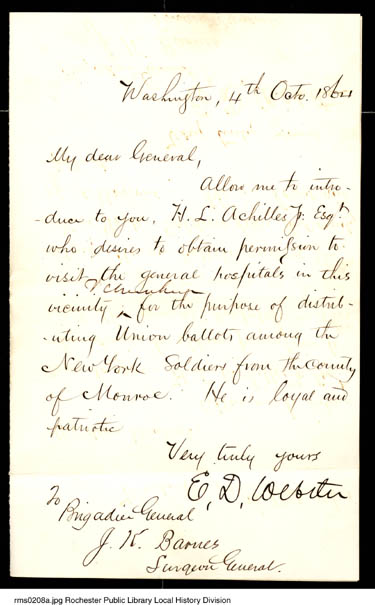 Washington, 4th Octo. 1864
My dear General,
Allow me to intro-
-duce to you, H. L. Achilles Jr. Esqr.
who desires to obtain permission to
visit the general hospitals in this
vicinity ^ for the purpose of distrib-
-uting Union ballots among the
New York Soldiers from the County
of Monroe. He is loyal and
patriotic
Very truly yours
E. D. Webster
To
Brigadier General
J. K. Barnes
Surgeon General.
rms0208a.jpg Rochester Public Library Local History Division